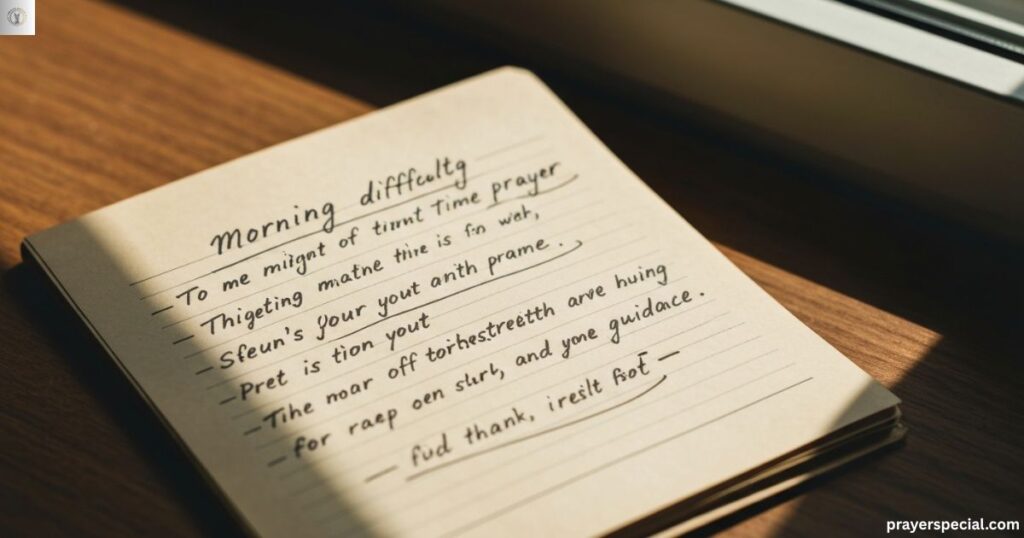 Morning difffcultg
To me miignt of tirnnt Time prayer
Thigeting matne thre is fn weh,
Sfeun's your yout anth prame.
Pret is tion yout
The noar off torhestreetth arve huing
for raep oen slurt, and yone guidance.
fud thank, ireslt fsot
prayerspecial.com